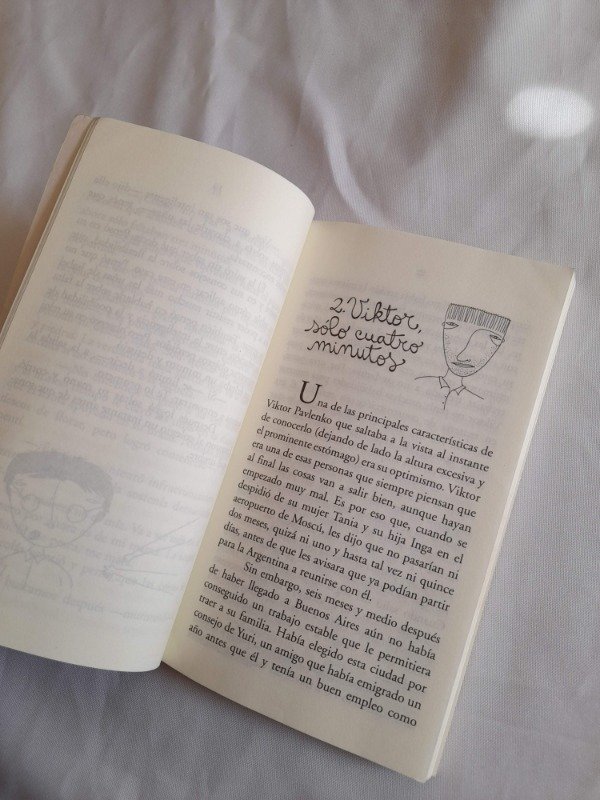 2. Viktor,
solo cuatro
minutos
Una de las principales características de
Viktor Pavlenko que saltaba a la vista al instante
de conocerlo (dejando de lado la altura excesiva y
el prominente estómago) era su optimismo. Viktor
era una de esas personas que siempre piensan que
al final las cosas van a salir bien, aunque hayan
empezado muy mal. Es por eso que, cuando se
despidió de su mujer Tania y su hija Inga en el
aeropuerto de Moscú, les dijo que no pasarían ni
dos meses, quizá ni uno y hasta tal vez ni quince
días, antes de que les avisara que ya podían partir
para la Argentina a reunirse con él.
Sin embargo, seis meses y medio después
de haber llegado a Buenos Aires aún no había
conseguido un trabajo estable que le permitiera
traer a su familia. Había elegido esta ciudad por
consejo de Yuri, un amigo que había emigrado un
año antes que él y tenía un buen empleo como